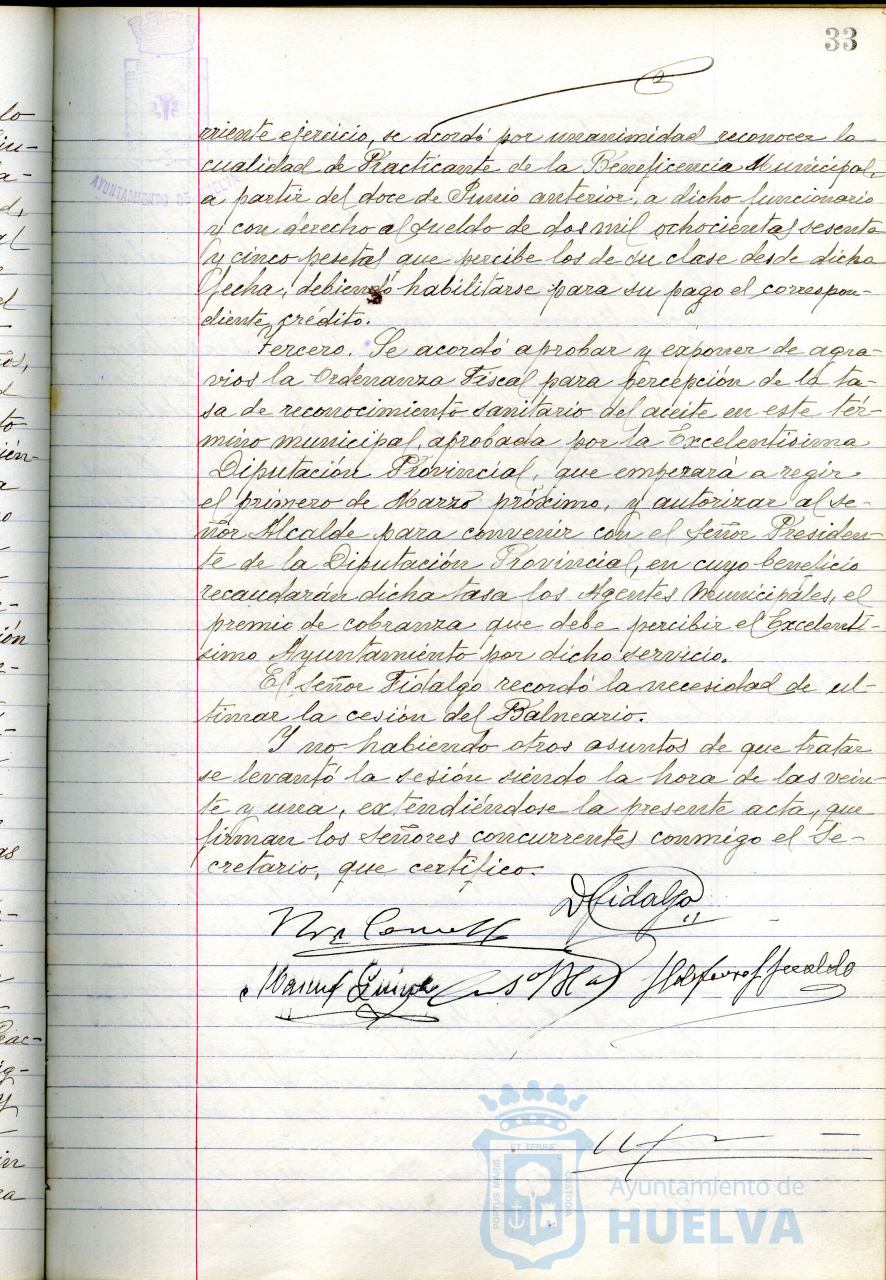 33
rriente ejercicio, se acordó por unanimidad reconocer la
cualidad de Practicante de la Beneficencia Municipal,
a partir del doce de Junio anterior, a dicho funcionario
y con derecho al sueldo de dos mil ochocientas sesenta
y cinco pesetas que percibe los de su clase desde dicha
fecha, debiendo habilitarse para su pago el correspon-
diente crédito.
Tercero. Se acordó aprobar y exponer de agra-
vios la Ordenanza Fiscal para percepción de la ta-
sa de reconocimiento sanitario del aceite en este tér-
mino municipal, aprobada por la Excelentísima
Diputación Provincial, que empezará a regir
el primero de Marzo próximo, y autorizar al se-
ñor Alcalde para convenir con el Señor Presiden-
te de la Diputación Provincial, en cuyo beneficio
recaudarán dicha tasa los Agentes Municipales, el
premio de cobranza que debe percibir el Excelentí-
simo Ayuntamiento por dicho servicio.
El Señor Fidalgo recordó la necesidad de ul-
timar la cesión del Balneario.
Y no habiendo otros asuntos de que tratar
se levantó la sesión siendo la hora de las vein-
te y una, extendiéndose la presente acta, que
firman los Señores concurrentes conmigo el Se-
cretario, que certifico.
DFidalgo
AYUNTAMIENTO DE HUELVA
PORTUS MARIS ET TERRAE CUSTODIA
Ayuntamiento de
HUELVA